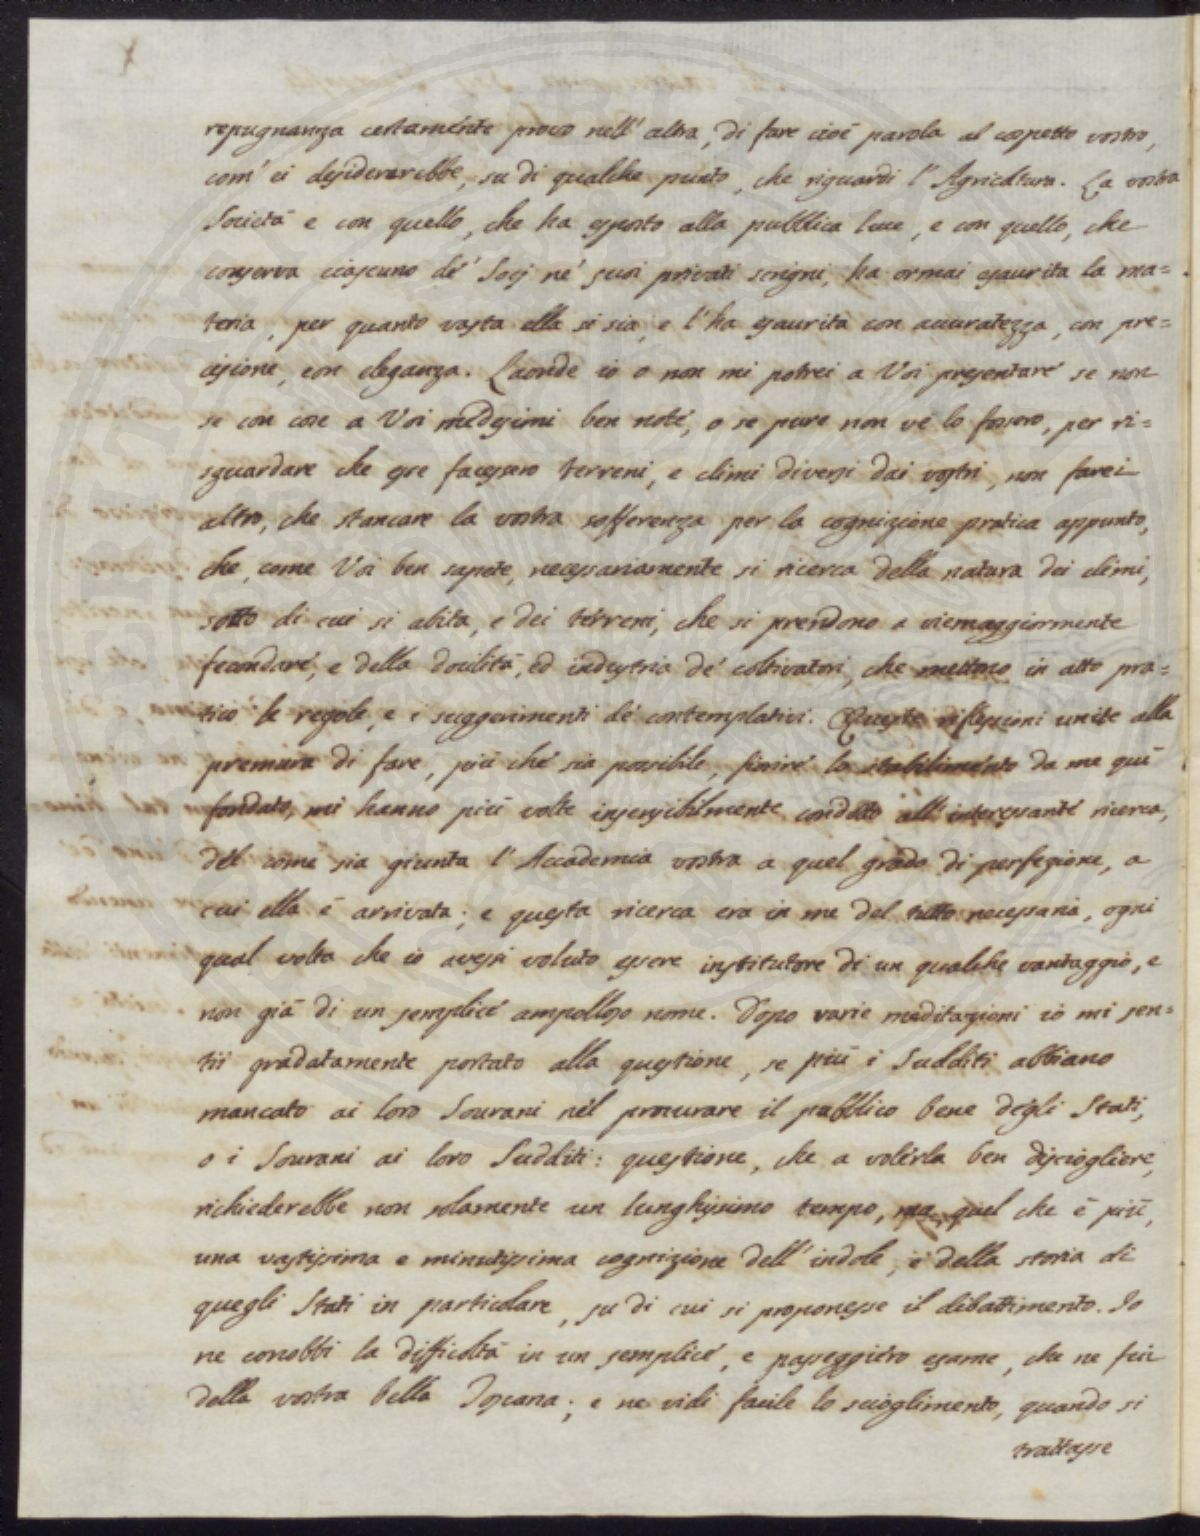 repugnanza certamente provo nell' altra, di fare cioè parola al cospetto vostro,
com' ei desidererebbe, su di qualche punto, che riguardi l' Agricoltura. La vostra
Società e con quello, che ha esposto alla pubblica luce, e con quello, che
conserva ciascuno de' Socj ne' suoi privati scrigni, ha ormai esaurita la ma=
teria, per quanto vasta ella si sia, e l' ha esaurita con accuratezza, con pre=
cisione, con eleganza. Laonde io o non mi potrei a Voi presentare se non
se con cose a Voi medesimi ben note, o se pure non ve lo fossero, per ri=
sguardare che esse facessero terreni, e climi diversi dai vostri, non farei
altro, che stancare la vostra sofferenza per la cognizione pratica appunto,
che, come Voi ben sapete, necessariamente si ricerca della natura dei climi,
sotto di cui si abita, e dei terreni, che si prendono a viemaggiormente
fecondare, e della docilità, ed industria de' coltivatori, che mettono in atto pra=
tico le regole, e i suggerimenti de' contemplativi. Queste riflessioni unite alla
premura di fare, più che sia possibile, fiorire lo stabilimento da me quì
fondato, mi hanno più volte insensibilmente condotto all' interessante ricerca,
del come sia giunta l' Accademia vostra a quel grado di perfezione, a
cui ella è arrivata; e questa ricerca era in me del tutto necessaria, ogni
qual volta che io avessi voluto essere institutore di un qualche vantaggio, e
non già di un semplice ampolloso nome. Dopo varie meditazioni io mi sen=
tii gradatamente portato alla questione, se più i Sudditi abbiano
mancato ai loro Sovrani nel procurare il pubblico bene degli Stati,
o i Sovrani ai loro Sudditi: questione, che a volerla ben disciogliere,
richiederebbe non solamente un lunghissimo tempo, ma, quel che è più,
una vastissima e minutissima cognizione dell' indole, e della storia di
quegli Stati in particolare, su di cui si proponesse il dibattimento. Io
ne conobbi la difficoltà in un semplice, e passeggiero esame, che ne feci
della vostra bella Toscana; e ne vidi facile lo scioglimento, quando si
trattasse